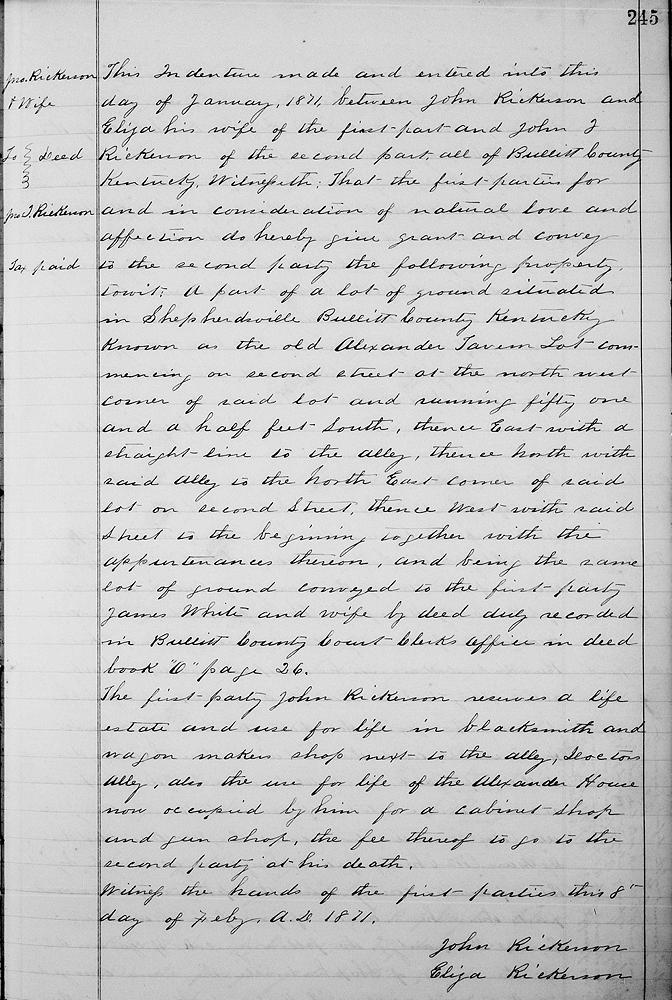 245
Jno. Rickerson
& Wife
To } Deed
Jno J. Rickerson
Tax paid
This Indenture made and entered into this
day of January, 1871, between John Rickerson and
Eliza his wife of the first part and John J
Rickerson of the second part, all of Bullitt County
Kentucky, Witnesseth: That the first parties for
and in consideration of natural love and
affection do hereby give grant and convey
to the second party the following property,
towit: A part of a lot of ground situated
in Shepherdsville Bullitt County Kentucky
Known as the old Alexander Tavern Lot com-
mencing on second street at the north west
corner of said lot and running fifty one
and a half feet South, thence East with a
straight line to the alley, thence North with
said Alley to the North East corner of said
lot on second Street, thence West with said
Street to the beginning together with the
appurtenances thereon, and being the same
lot of ground conveyed to the first party
James White and wife by deed duly recorded
in Bullitt County Court Clerks office in deed
book "O" page 26.
The first party John Rickerson reserves a life
estate and use for life in blacksmith and
wagon makers shop next to the alley, Doctors
Alley, also the use for life of the Alexander House
now occupied by him for a cabinet shop
and gun shop, the fee thereof to go to the
second party at his death.
Witness the hands of the first parties this 8"
day of Feby. A.D. 1871.
John Rickerson
Eliza Rickerson